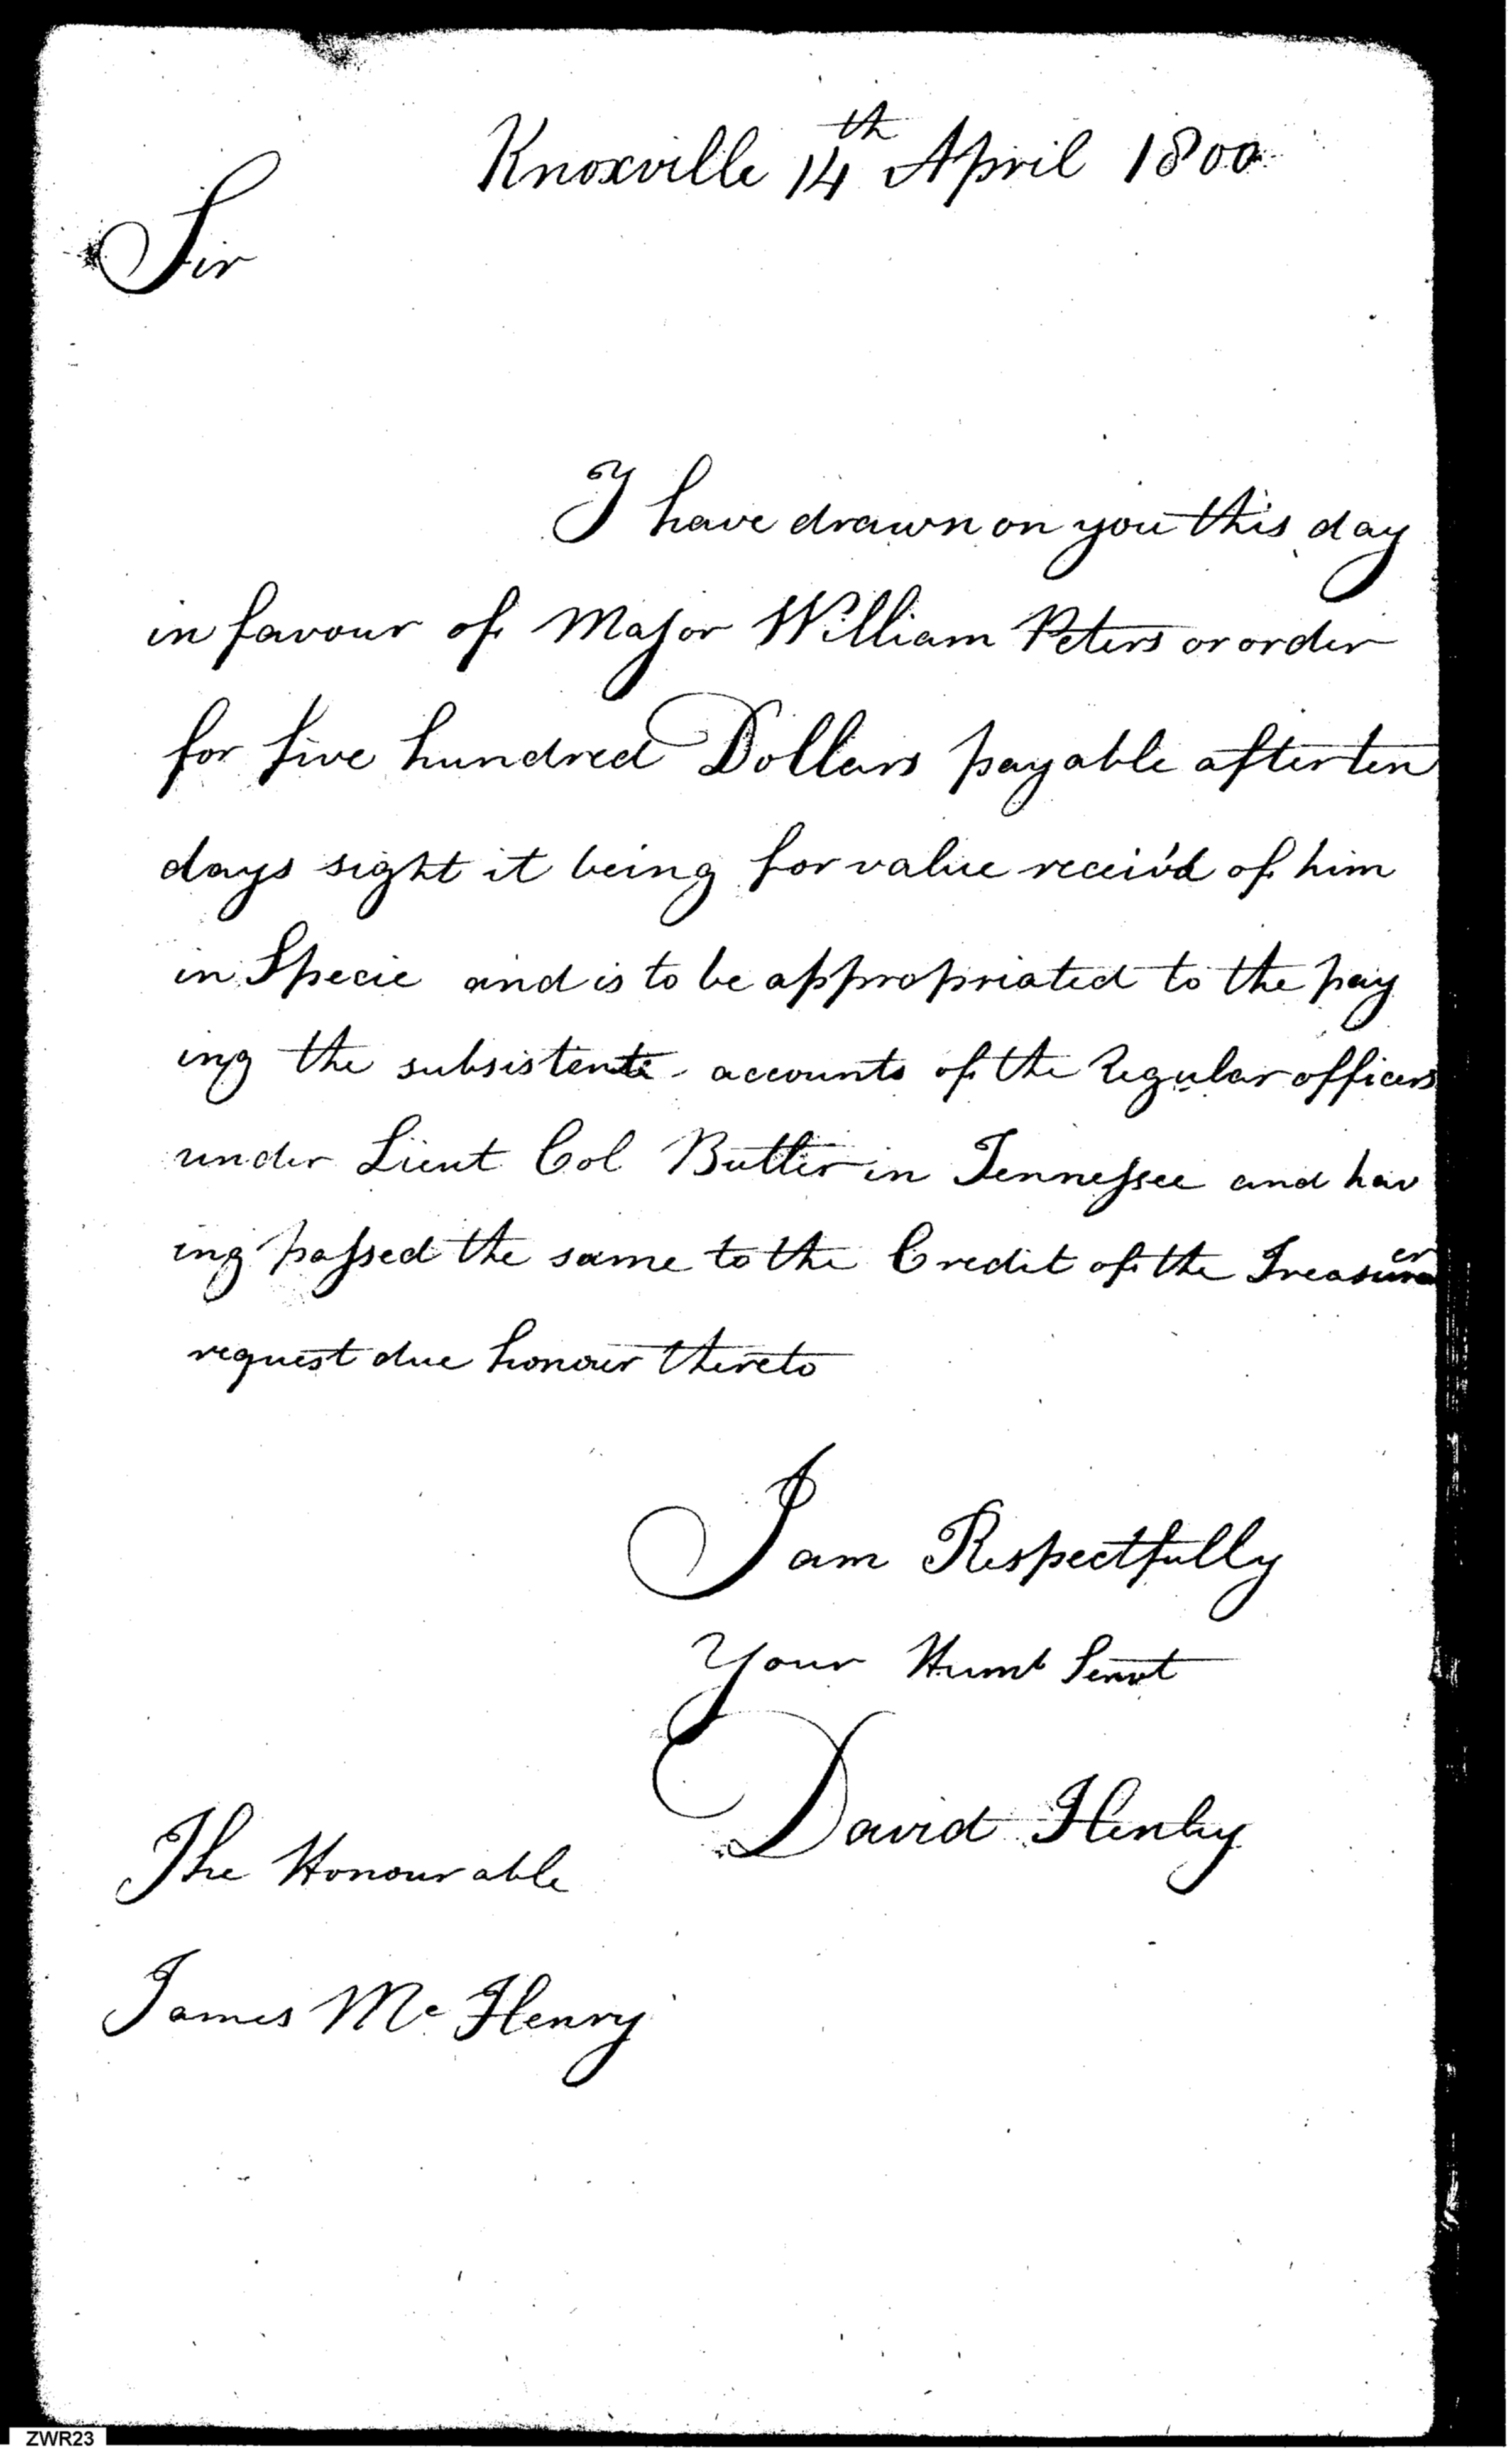 Knoxville 14th April 1800
Sir
I have drawn on you this day
in favour of Major William Peters or order
for five hundred Dollars payable after ten
days sight it being for value receiv'd of him
in Specie and is to be appropriated to the pay
ing the subsistente accounts of the Regular officers
under Lieut Col Butler in Tennessee and hav
ing passed the same to the Credit of the Treasurer
request due honour thereto
I am Respectfully
Your Humb Servt
David Henley
The Honourable
James McHenry
ZWR23